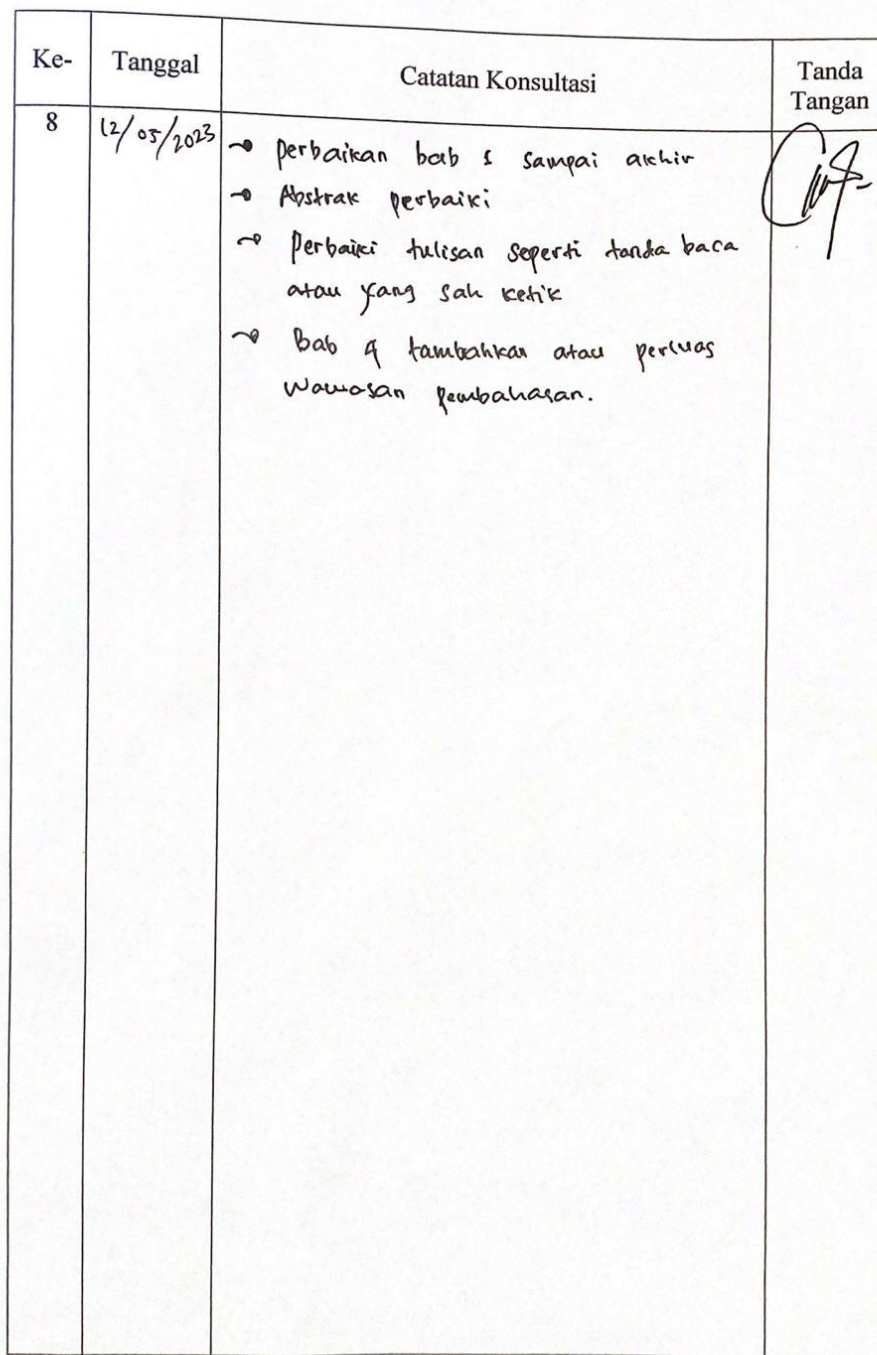 Ke- Tanggal Catatan Konsultasi Tanda Tangan
8 12/05/2023
→ perbaikan bab 1 sampai akhir
→ Abstrak perbaiki
→ Perbaiki tulisan seperti tanda baca
atau yang sah ketik
→ Bab 4 tambahkan atau perluas
wawasan pembahasan.